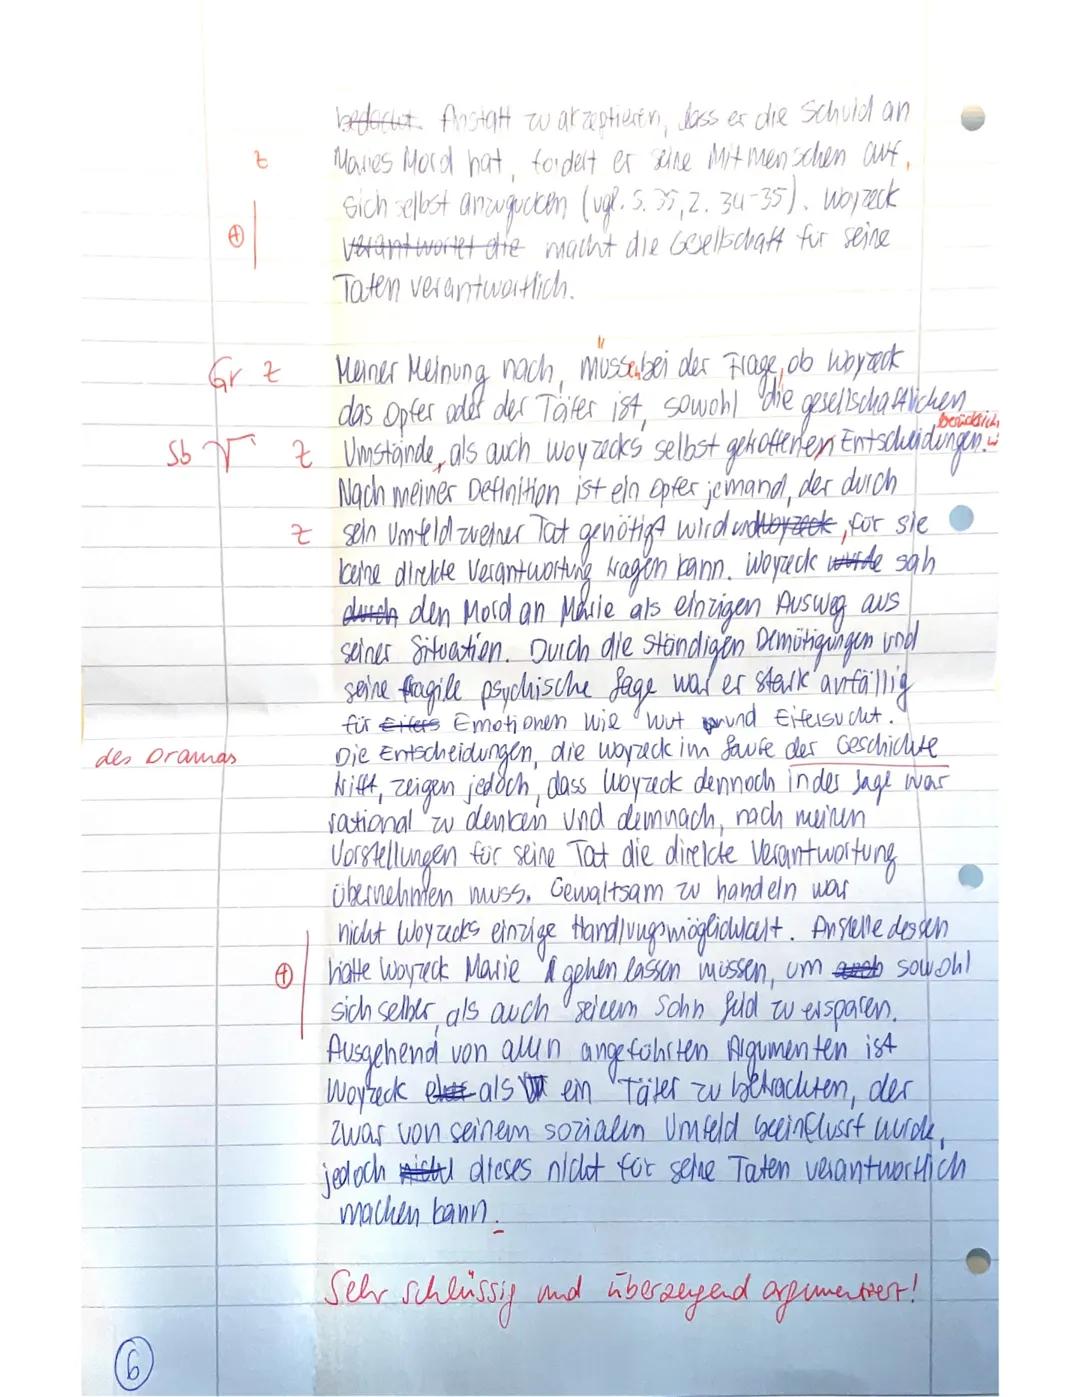 bedacht. Anstatt zu akzeptieren, dass er die Schuld an
z Maries Mord hat, fordert er seine Mitmenschen auf,
sich selbst anzugucken (vgl. S. 35, Z. 34-35). Woyzeck
⊕ verantwortet die macht die Gesellschaft für seine
Taten verantwortlich.
Gr z Meiner Meinung nach, müssen bei der Frage, ob Woyzeck
das Opfer oder der Täter ist, sowohl die gesellschaftlichen
berücksich
Sb √ z Umstände, als auch Woyzecks selbst getroffenen Entscheidungen.
Nach meiner Definition ist ein Opfer jemand, der durch
z sein Umfeld zu einer Tat genötigt wird und Woyzeck, für sie
keine direkte Verantwortung tragen kann. Woyzeck wurde sah
durch den Mord an Marie als einzigen Ausweg aus
seiner Situation. Durch die ständigen Demütigungen und
seine fragile psychische Lage war er stark anfällig
für Eifers Emotionen wie Wut und Eifersucht.
des Dramas Die Entscheidungen, die Woyzeck im Laufe der Geschichte
trifft, zeigen jedoch, dass Woyzeck dennoch in der Lage war
rational zu denken und demnach, nach meinen
Vorstellungen für seine Tat die direkte Verantwortung
übernehmen muss. Gewaltsam zu handeln war
nicht Woyzecks einzige Handlungsmöglichkeit. Anstelle dessen
⊕ hätte Woyzeck Marie gehen lassen müssen, um auch sowohl
sich selber, als auch seinem Sohn Leid zu ersparen.
Ausgehend von allen angeführten Argumenten ist
Woyzeck eher als ein Täter zu betrachten, der
zwar von seinem sozialen Umfeld beeinflusst wurde,
jedoch nicht dieses nicht für seine Taten verantwortlich
machen kann.
Sehr schlüssig und überzeugend argumentiert!
6